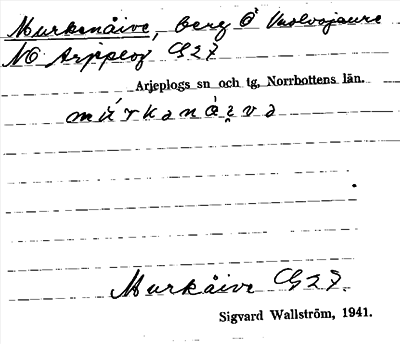 Murkenåive, berg Ö Uvolvojaure
NO Arjeplog G27
Arjeplogs sn och tg, Norrbottens län.
Murkåive G27.
Sigvard Wallström, 1941.